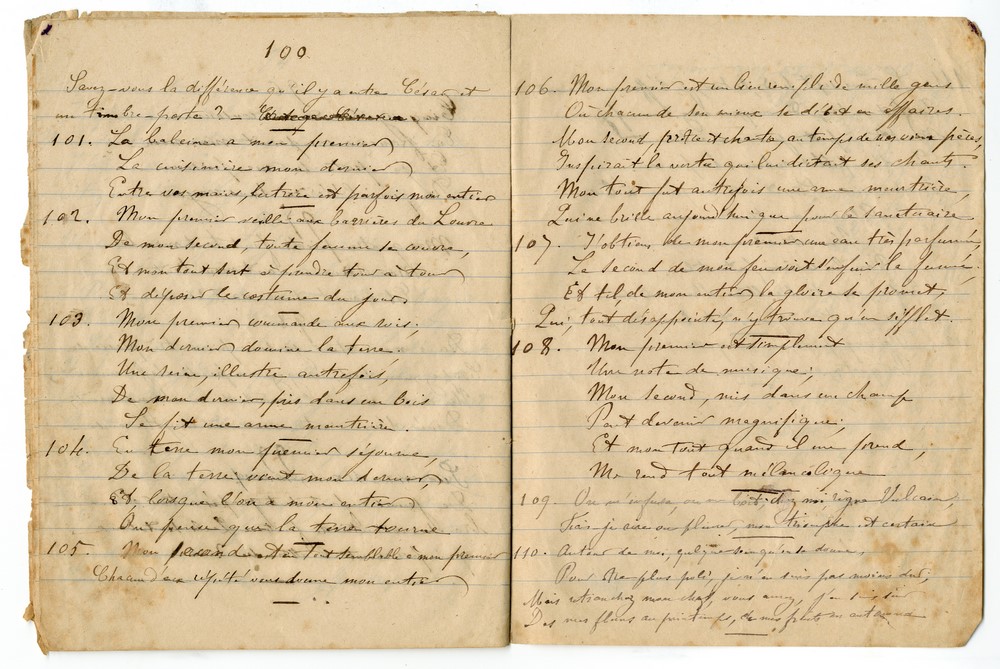 100
Savez-vous la différence qu'il y a entre César et
un timbre-poste ? —
101. La baleine a mon premier
La cuisinière mon dernier
Entre vos mains, lectrice est parfois mon entier
102. Mon premier veille aux barrières du Louvre
De mon second toute femme se couvre,
Et mon tout sert à prendre tour à tour
Et déposer le costume du jour.
103. Mon premier commande aux rois;
Mon dernier domine la terre.
Une reine, illustre autrefois,
De mon dernier, pris dans un bois
Se fit une arme meurtrière.
104. En terre mon premier séjourne,
De la terre vient mon dernier,
Et lorsque l'on a mon entier
On pense que la terre tourne
105. Mon second est à tout semblable à mon premier
Chacun d'eux répété vous donne mon entier
106. Mon premier est un lieu rempli de mille gens
Où chacun de son mieux se dit en affaires.
Mon second, prêtre et chanta, au temps de nos vieux pères,
Inspirait la vertu qui lui dictait ses chants.
Mon tout fut autrefois une arme meurtrière,
Qui ne brille aujourd'hui que pour le sanctuaire
107. J'obtiens de mon premier une eau très parfumée,
Le second de mon feu voit s'enfuir la fumée.
Et tel de mon entier la gloire se promet,
Qui, tout désappointé, n'y trouve qu'un sifflet.
108. Mon premier est simplement
Une note de musique;
Mon second, mis dans un champ
Peut devenir magnifique;
Et mon tout quand il me prend,
Me rend tout mélancolique
109. On m'infuse, ou en chez moi règne Vulcain
Fais je rire ou pleurer, mon triomphe est certain
110. Autour de moi, quelque soin qu'on se donne,
Pour être plus poli, je n'en suis pas moins dur,
Mais retranchez mon chef, vous aurez, j'en suis sûr
Des mes fleurs au printemps, de mes fruits en automne